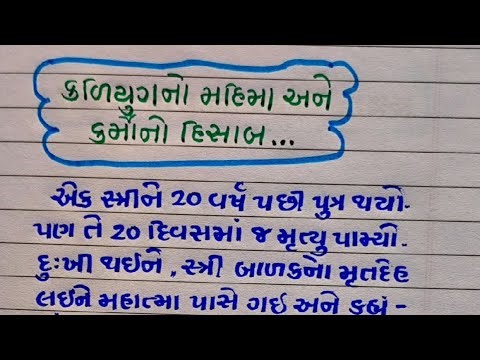 કળિયુગનો મહિમા અને
કર્મોનો હિસાબ...
એક સ્ત્રીને 20 વર્ષ પછી પુત્ર થયો.
પણ તે 20 દિવસમાં જ મૃત્યુ પામ્યો.
દુઃખી થઈને, સ્ત્રી બાળકનો મૃતદેહ
લઈને મહાત્મા પાસે ગઈ અને કહ્યું -